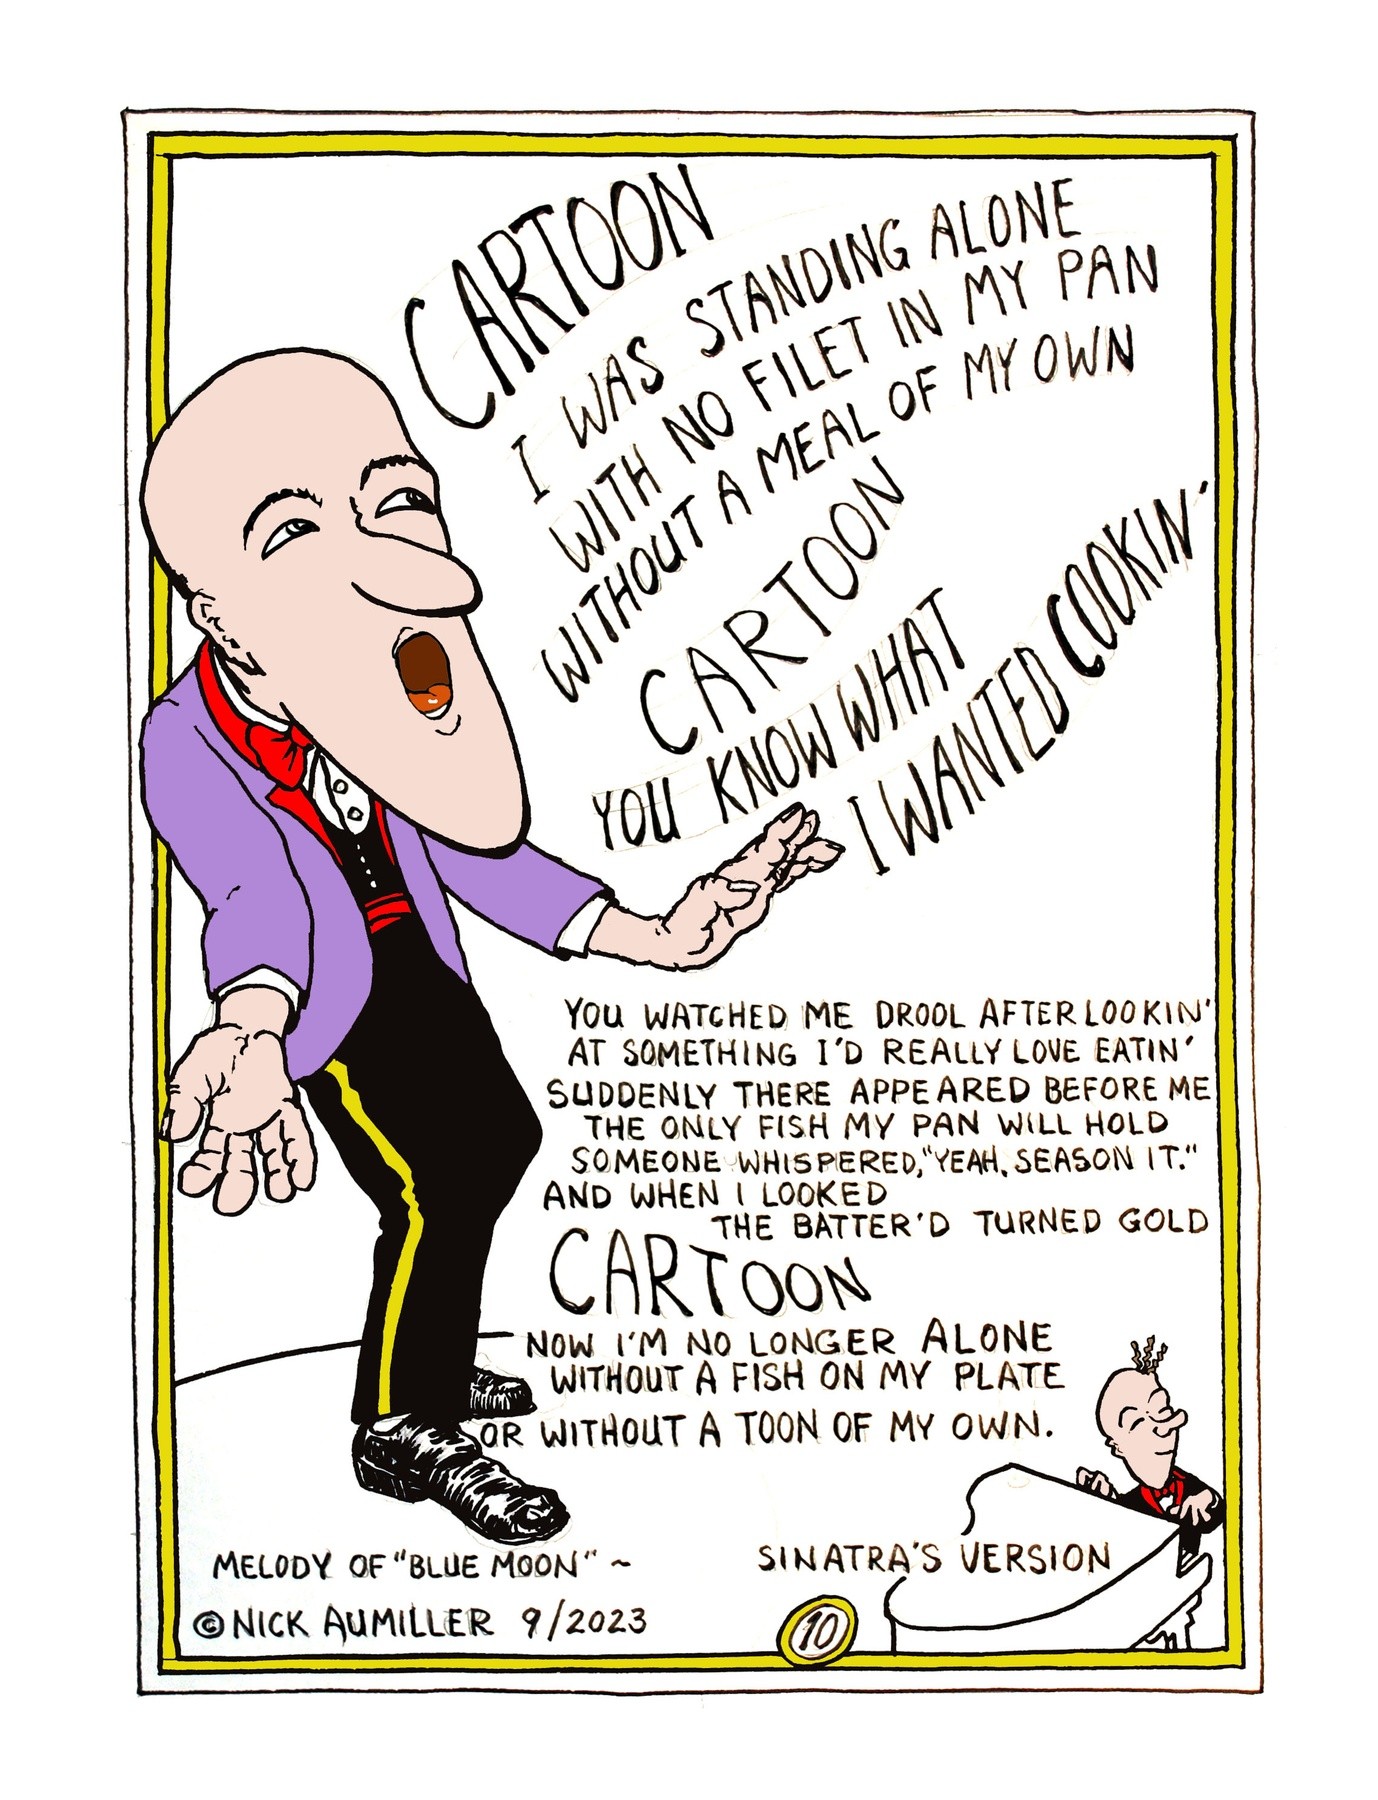 CARTOON
I WAS STANDING ALONE
WITH NO FILET IN MY PAN
WITHOUT A MEAL OF MY OWN
CARTOON
YOU KNOW WHAT
I WANTED COOKIN'
YOU WATCHED ME DROOL AFTER LOOKIN'
AT SOMETHING I'D REALLY LOVE EATIN'
SUDDENLY THERE APPEARED BEFORE ME
THE ONLY FISH MY PAN WILL HOLD
SOMEONE WHISPERED, "YEAH, SEASON IT."
AND WHEN I LOOKED
THE BATTER'D TURNED GOLD
CARTOON
NOW I'M NO LONGER ALONE
WITHOUT A FISH ON MY PLATE
OR WITHOUT A TOON OF MY OWN.
MELODY OF "BLUE MOON" ~
SINATRA'S VERSION
© NICK AUMILLER 9/2023
10